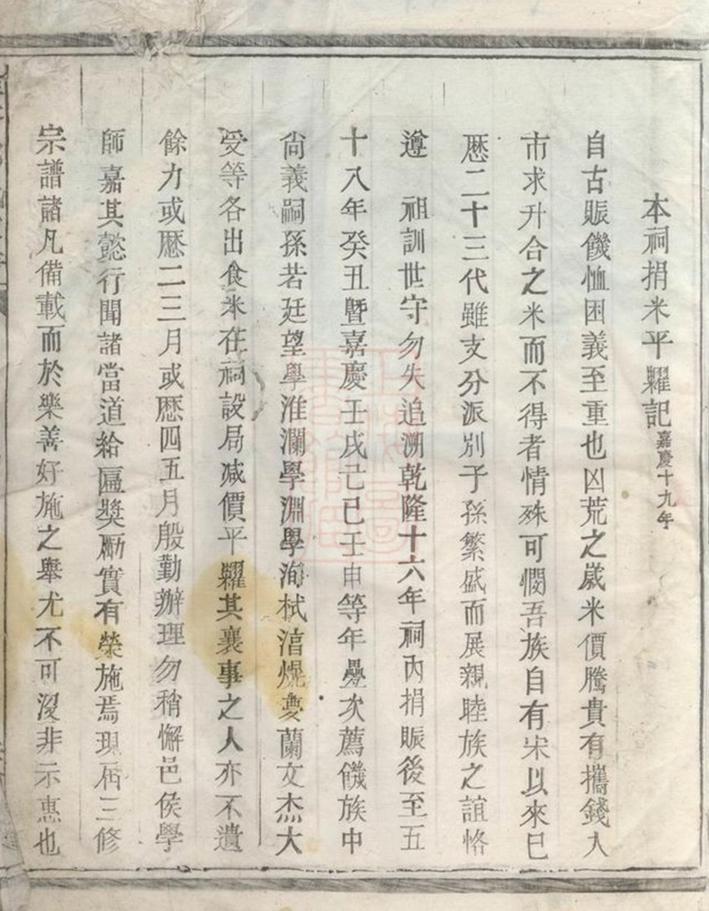 本祠捐米平糶記嘉慶十九年
自古賑饑恤困義至重也凶荒之歲米價騰貴有攜錢入
市求升合之米而不得者情殊可憫吾族自有宋以來已
歷二十三代雖支分派別子孫繁盛而展親睦族之誼恪
遵 祖訓世守勿失追溯乾隆十六年祠內捐賑後至五
十八年癸丑暨嘉慶壬戌己巳壬申等年疊次薦饑族中
尚義嗣孫若廷望學淮瀾學淵學洵栻湆燬夔蘭文杰大
受等各出食米在祠設局減價平糶其襄事之人亦不遺
餘力或歷二三月或歷四五月殷勤辦理勿稍懈邑侯學
師嘉其懿行聞諸當道給匾獎勵實有榮施焉現屆三修
宗譜諸凡備載而於樂善好施之舉尤不可沒非示惠也